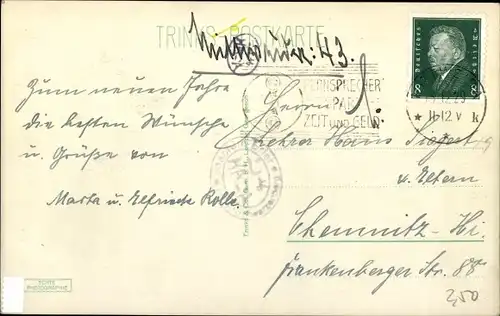 TRINKS-POSTKARTE
Mittelstück: 43.
Deutsches Reich
8 8
FERNSPRECHER
SPART
ZEIT UND GELD
11-12 V
k
Zum neuen Jahre
die besten Wünsche
u. Grüße von
Marta u. Elfriede Kolle.
Herrn
Lehrer Hans
u. Eltern
Chemnitz-
Frankenberger Str. 88
2,50
ECHTE
PHOTOGRAPHIE